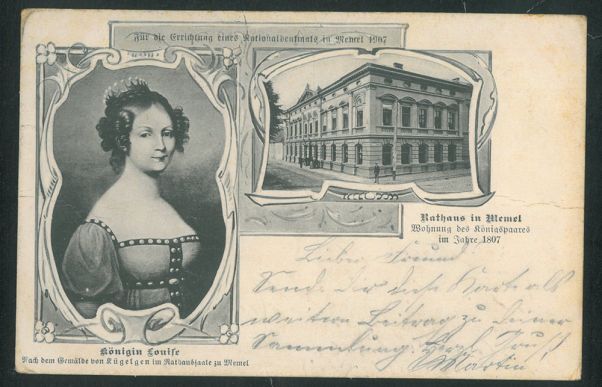 Für die Errichtung eines Nationaldenkmals in Memel 1907
Rathaus in Memel
Wohnung des Königspaares
im Jahre 1807
Königin Louise
Nach dem Gemälde von Kügelgen im Rathaussaale zu Memel
Lieber Freund
Sende Dir diese Karte als
weitern Beitrag zu deiner
Sammlung. Herzl. Gruß
Martin